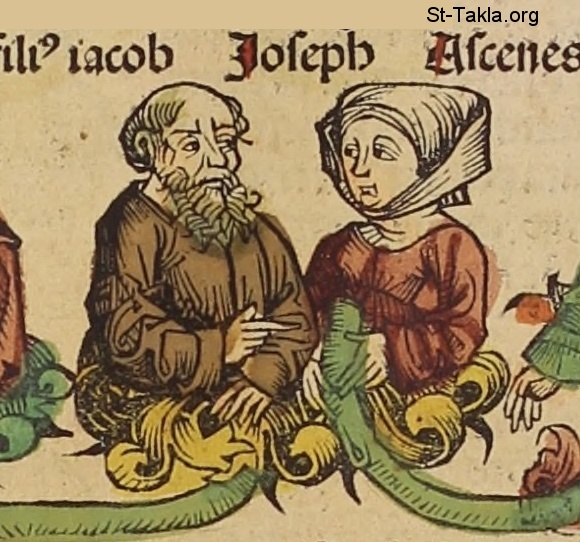 St-Takla.org
filiꝰ iacob Joseph Ascenes